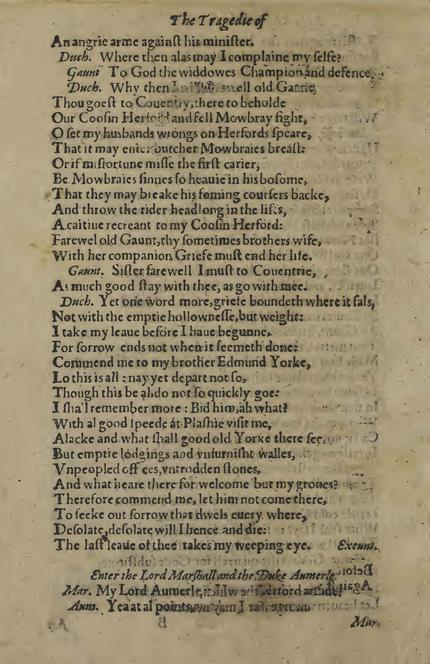 The Tragedie of
An angrie arme against his minister.
Duch. Where then alas may I complaine my selfe?
Gaunt To God the widdowes Champion and defence,
Duch. Why then I will, farewell old Gaunt,
Thou goest to Couentry, there to beholde
Our Coosin Herford and fell Mowbray fight,
O set my husbands wrongs on Herfords speare,
That it may enter butcher Mowbraies breast:
Or if misfortune misse the first carier,
Be Mowbraies sinnes so heauie in his bosome,
That they may breake his foming coursers backe,
And throw the rider headlong in the lists,
A caitiue recreant to my Coosin Herford:
Farewel old Gaunt, thy sometimes brothers wife,
With her companion Griefe must end her life.
Gaunt. Sister farewell I must to Couentrie,
As much good stay with thee, as go with mee.
Duch. Yet one word more, griefe boundeth where it fals,
Not with the emptie hollownesse, but weight:
I take my leaue before I haue begunne,
For sorrow ends not when it seemeth done:
Commend me to my brother Edmund Yorke,
Lo this is all: nay yet depart not so,
Though this be al, do not so quickly goe:
I shal remember more: Bid him, ah what?
With al good speede at Plashie visite me,
Alacke and what shall good old Yorke there see,
But emptie lodgings and vnfurnisht walles,
Vnpeopled offices, vntrodden stones,
And what heare there for welcome but my grones?
Therefore commend me, let him not come there,
To seeke out sorrow that dwels euery where,
Desolate, desolate will I hence and die:
The last leaue of thee takes my weeping eye. Exeunt.
Enter the Lord Marshall and the Duke Aumerle.
Mar. My Lord Aumerle, is Herford armde?
Aum. Yea at al points,
B Mar.